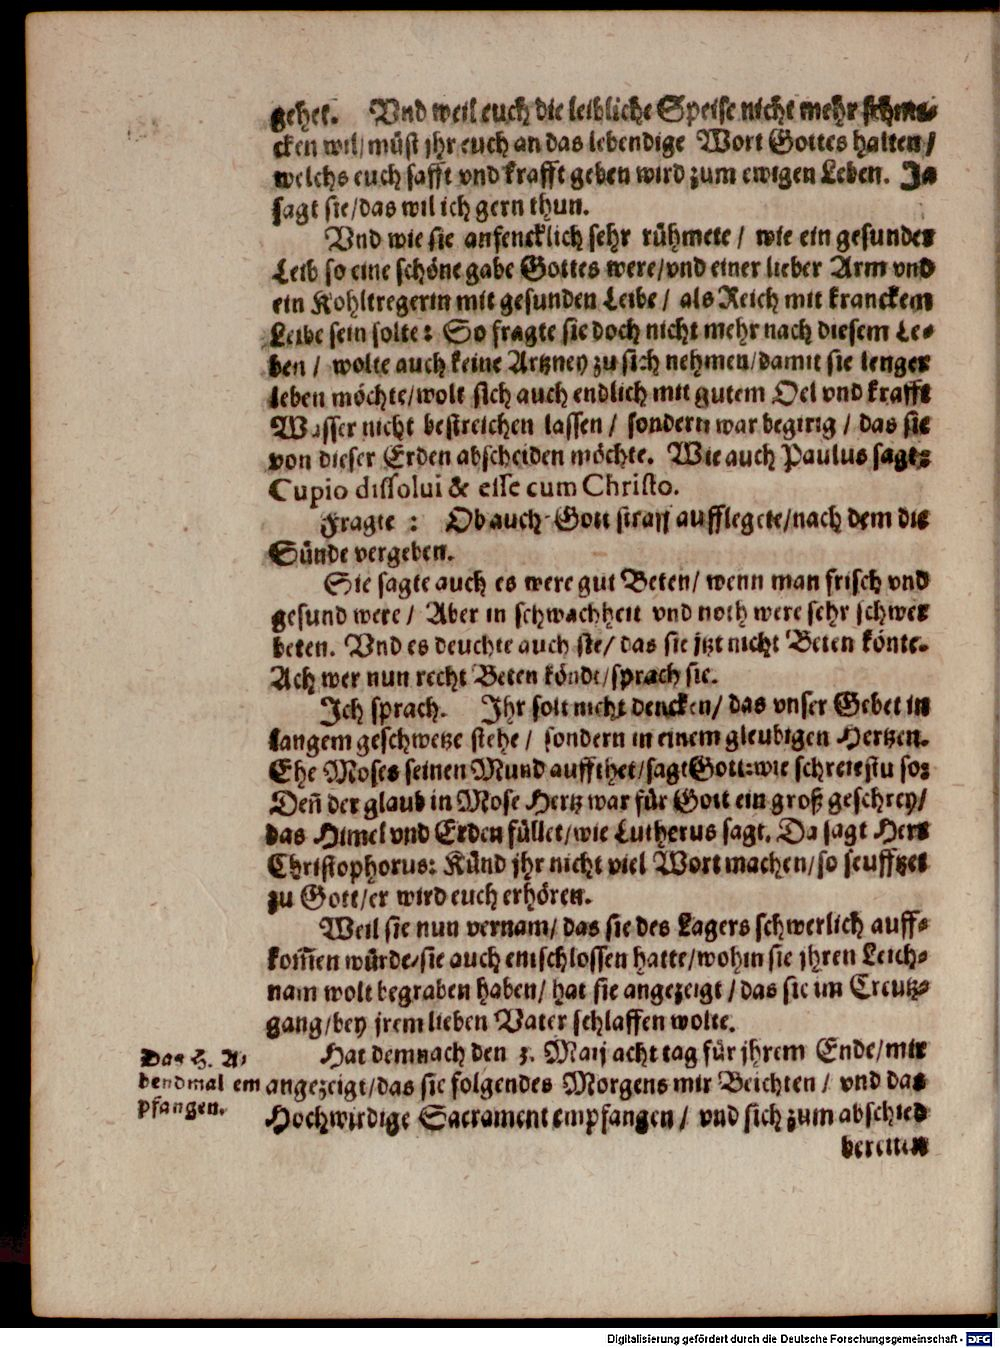 gehet. Vnd weil euch die leibliche Speise nicht mehr schme⸗
cken wil/ müst jhr euch an das lebendige Wort Gottes halten/
welchs euch safft vnd krafft geben wird zum ewigen Leben. Ja
sagt sie/das wil ich gern thun.
Vnd wie sie anfencklich sehr rühmete/ wie ein gesunder
Leib so eine schöne gabe Gottes were/vnd einer lieber Arm vnd
ein Kohltregerin mit gesunden Leibe/ als Reich mit kranckem
Leibe sein solte: So fragte sie doch nicht mehr nach diesem Le⸗
ben/ wolte auch keine Artzney zu sich nehmen/damit sie lenger
leben möchte/wolt sich auch endlich mit gutem Oel vnd krafft
Wasser nicht bestreichen lassen/ sondern war begirig/ das sie
von dieser Erden abscheiden möchte. Wie auch Paulus sagt:
Cupio dissolui & esse cum Christo.
Fragte: Ob auch Gott straff aufflegete/nach dem die
Sünde vergeben.
Sie sagte auch es were gut Beten/ wenn man frisch vnd
gesund were/ Aber in schwachheit vnd noth were sehr schwer
beten. Vnd es deuchte auch sie/ das sie jtzt nicht Beten könte.
Ach wer nun recht Beten könde/sprach sie.
Ich sprach. Ihr solt nicht dencken/ das vnser Gebet in
langem geschwetze stehe/ sondern in einem gleubigen Hertzen.
Ehe Moses seinen Mund auffthet/sagt Gott: wie schreiestu so:
Deñ der glaub in Mose Hertz war für Gott ein groß geschrey/
das Himel vnd Erden füllet/wie Lutherus sagt. Da sagt Herr
Christophorus: Künd jhr nicht viel Wort machen/so seufftzet
zu Gott/er wird euch erhören.
Weil sie nun vernam/ das sie des Lagers schwerlich auff⸗
kom̃en würde/sie auch entschlossen hatte/wohin sie jhren Leich⸗
nam wolt begraben haben/ hat sie angezeigt/das sie im Creutz⸗
gang/bey jrem lieben Vater schlaffen wolte.
Hat demnach den 3. Maij acht tag für jhrem Ende/mir
angezeigt/das sie folgendes Morgens mir Beichten/ vnd das
Hochwirdige Sacrament empfangen/ vnd sich zum abschied
bereiten
Das H. A⸗
bendmal em
pfangen.
Digitalisierung gefördert durch die Deutsche Forschungsgemeinschaft - DFG